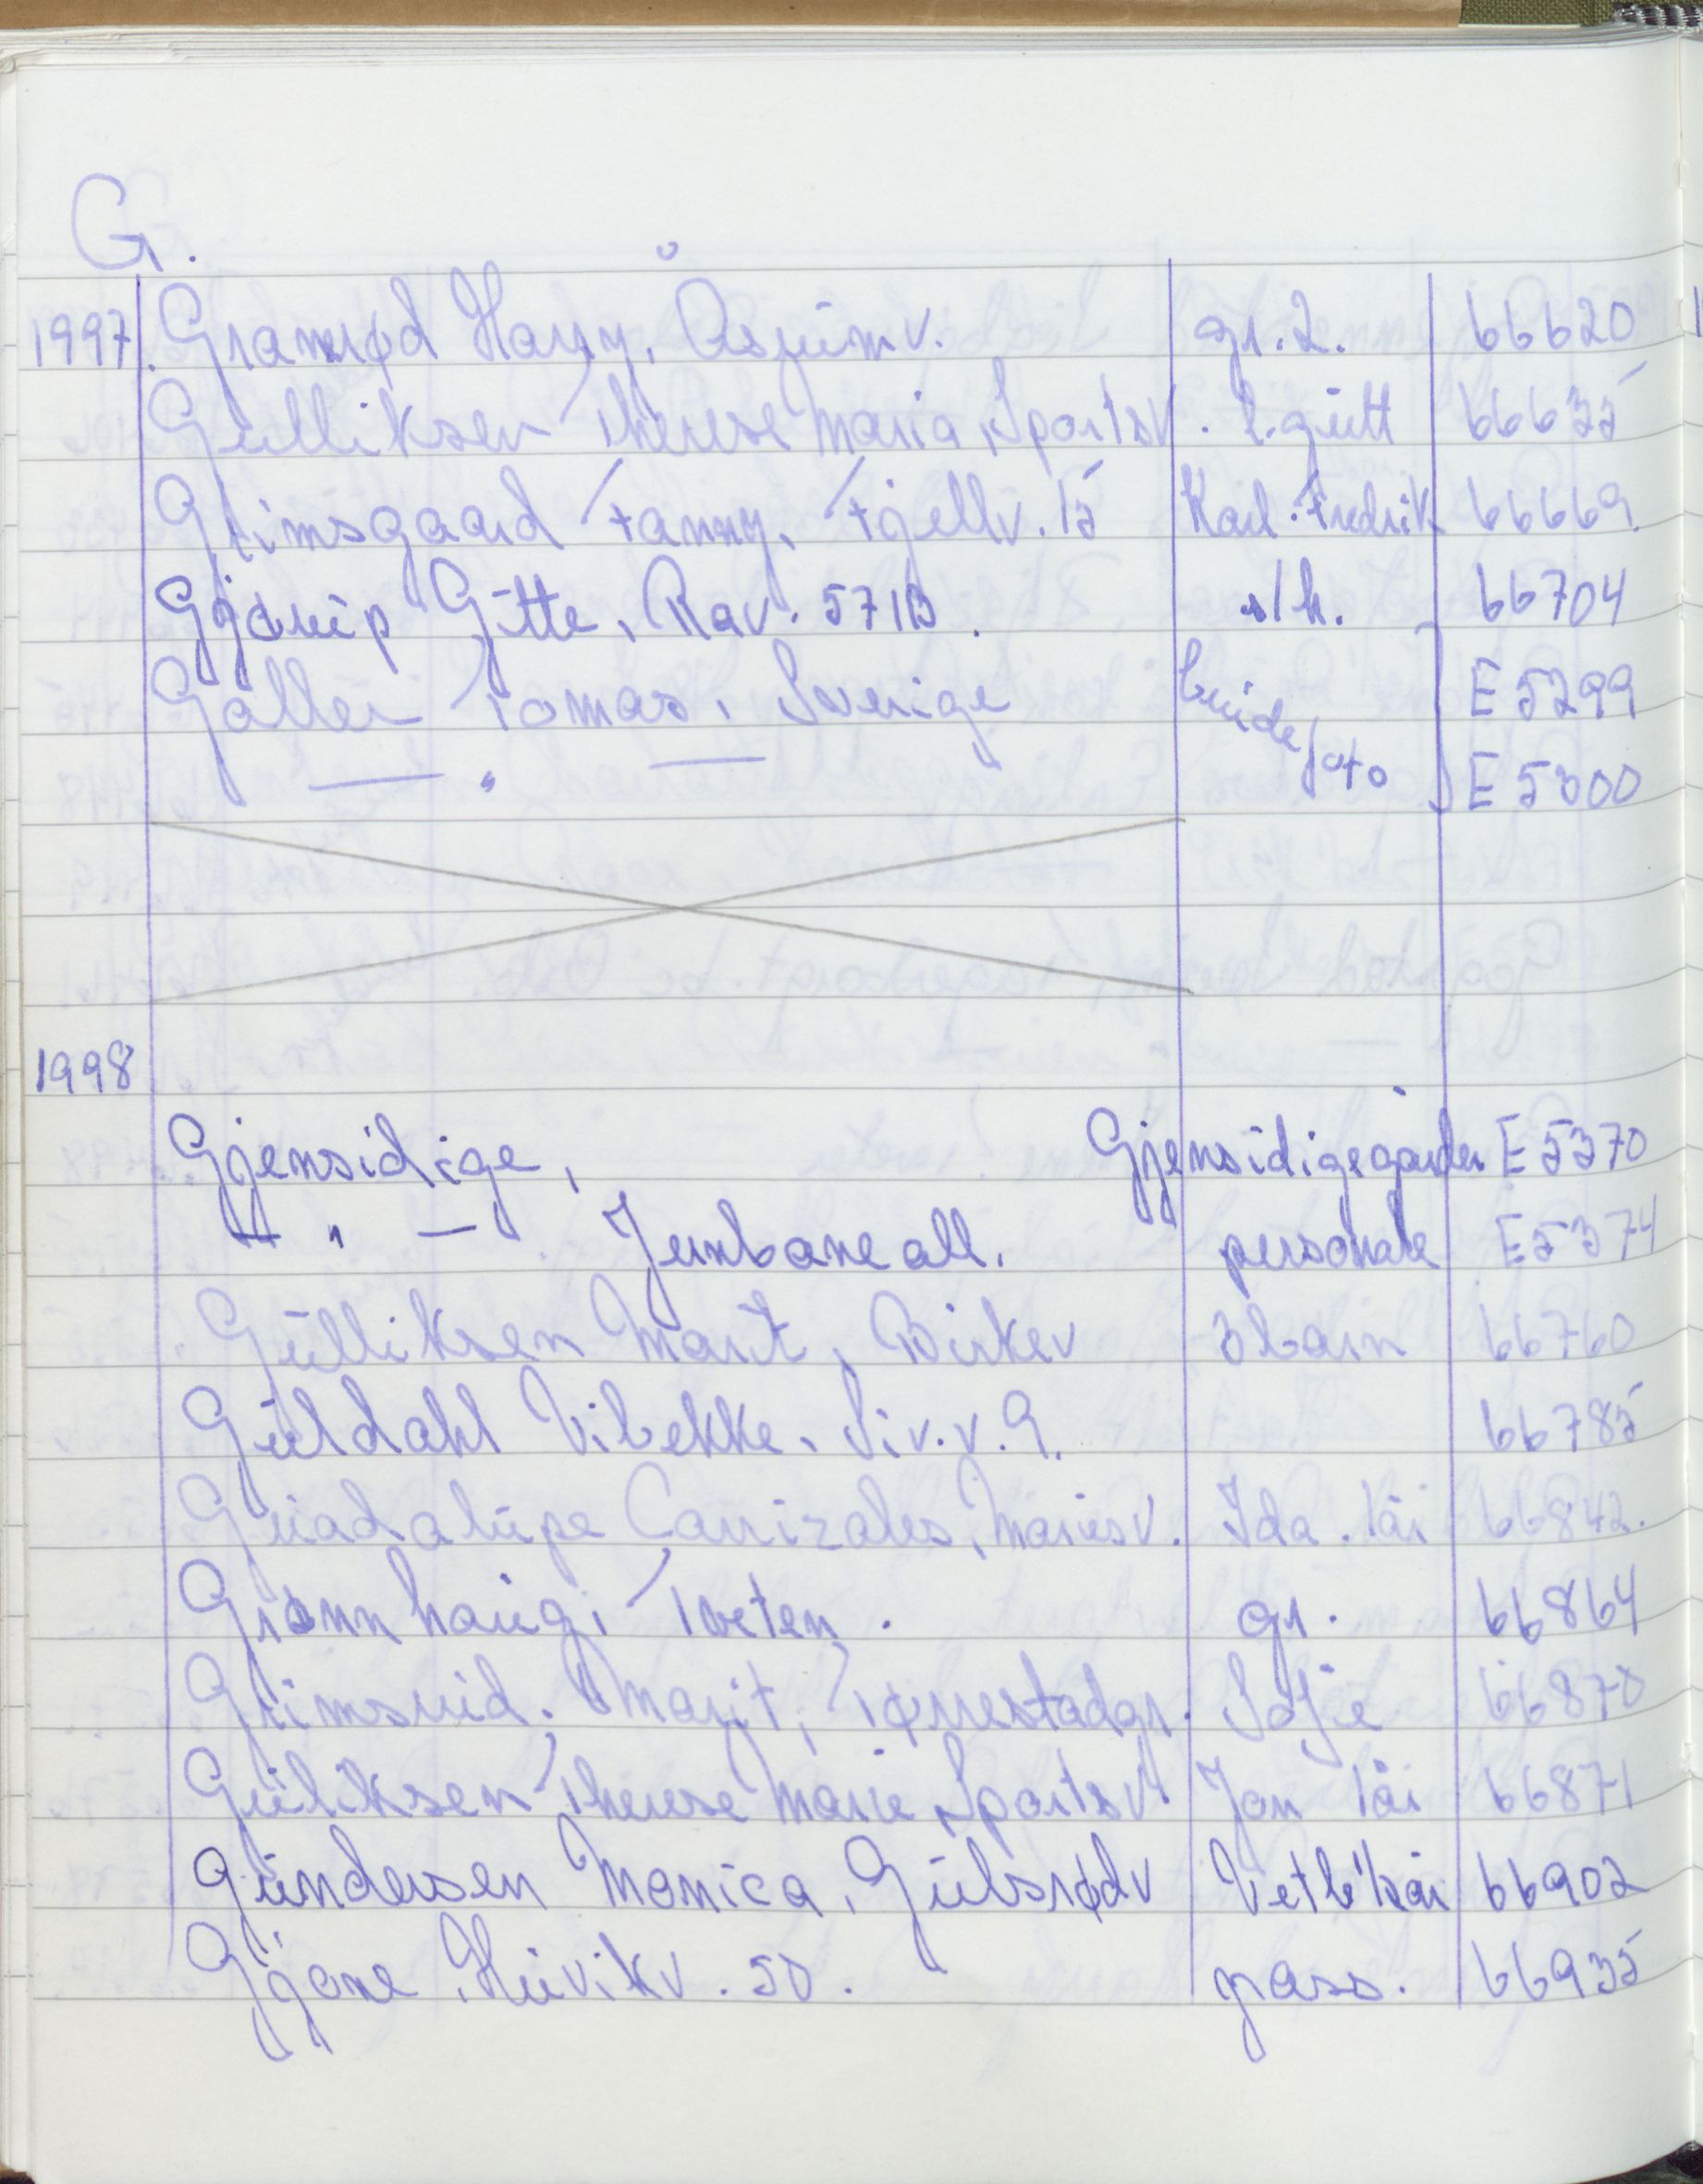 G.
1997. Gramrød Harry, Åsrumv. gr. 2. 66620
Gulliksen Therese Maria, Sportsv. l. gutt 66635
Grimsgaard Fanny, Fjellv. 15 Karl. Fredrik 66669.
Gjørup Gitte, Rav. 57B. s/h. 66704
Galler Tomas, Sverige brude E 5299
— " — foto E 5300
1998
Gjensidige, Gjensidigegården E 5370
— " — Jernbaneall. personale E 5374
Gulliksen Marit, Birkev 3 barn 66760
Guldahl Vibekke, Siv. v. 9. 66785
Guadalupe Carrizales, Mariesv. Ida. 1år 66842.
Grønnhaug, Tveten. gr. 66864
Grimsrud. Marit, Tørrestadgr. Sofie 66870
Guliksen Therese Marie, Sportsv Jon 1år 66871
Gundersen Monica, Gulsrødv Vetle ½år 66902
Gjone, Huvikv. 50. pass. 66935